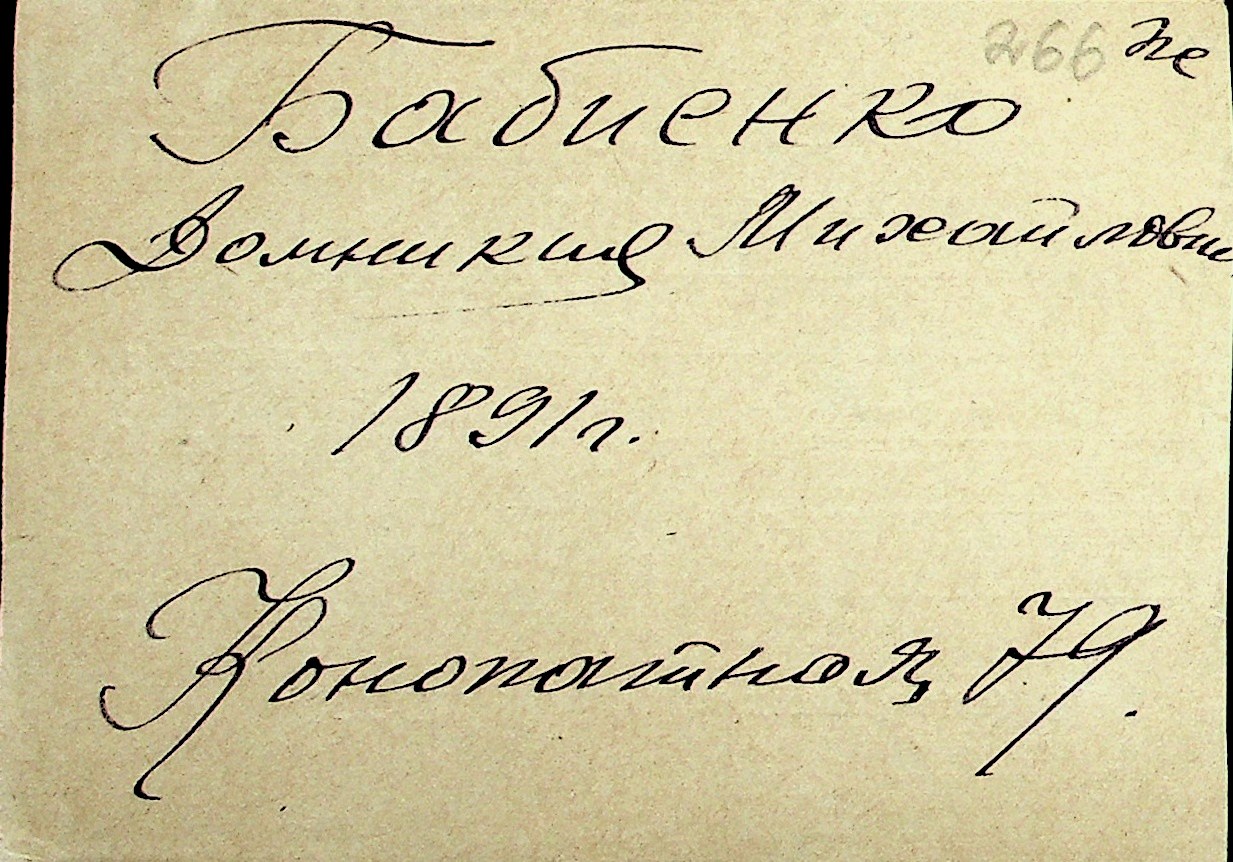 266 пе
Бабиенко
Домникия Михайловна
1891г.
Конопатная 79.